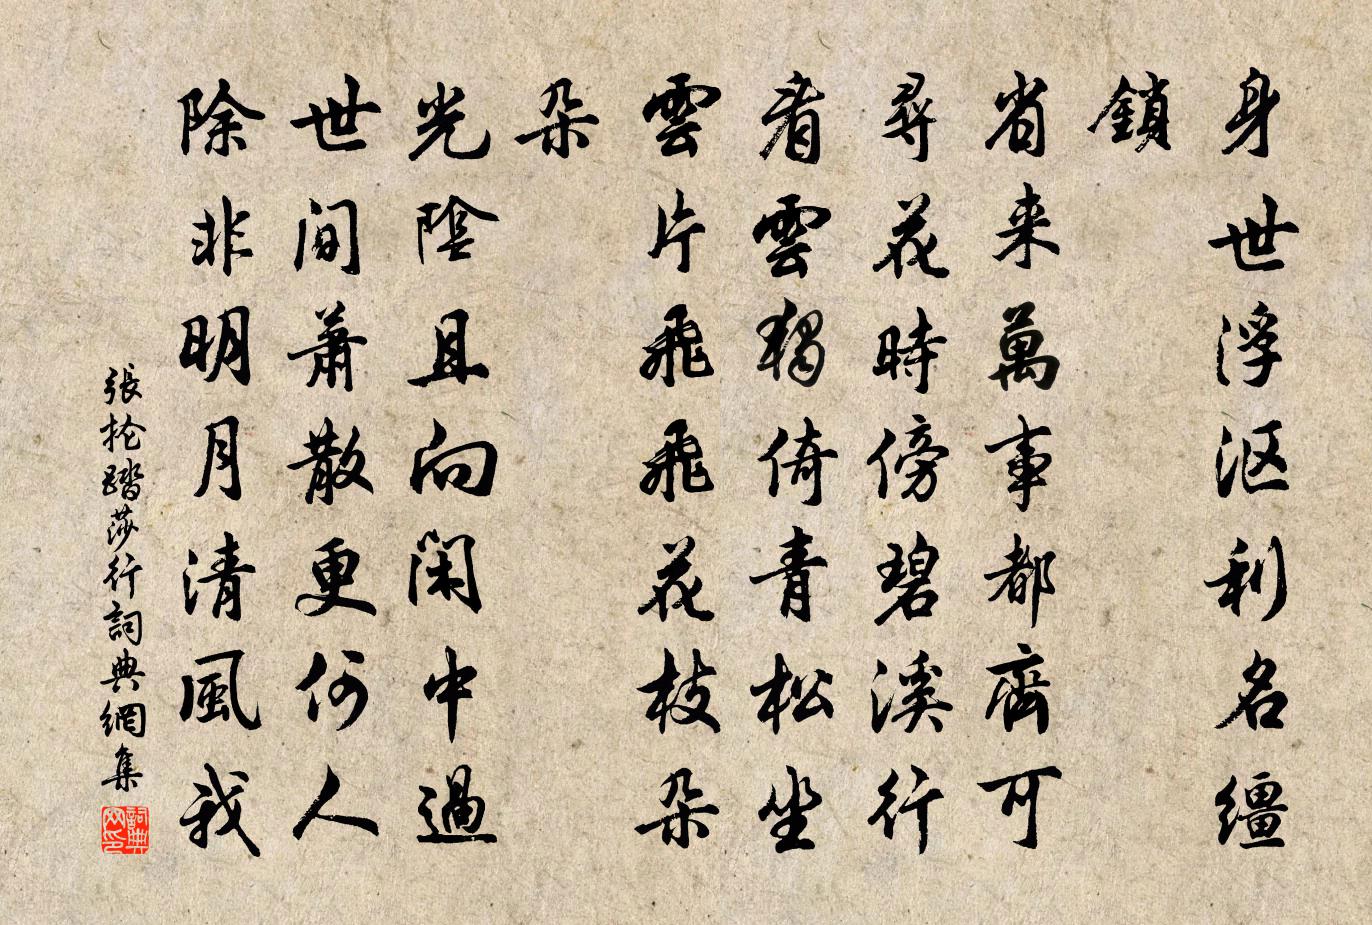 身世浮沤利名繮
鎖
省来萬事都齊可
尋花時傍碧溪行
看雲獨倚青松坐
雲片飛飛花枝朵
朵
光陰且向閑中過
世间蕭散更何人
除非明月清風我
張抡踏莎行詞典網集
詞典网印